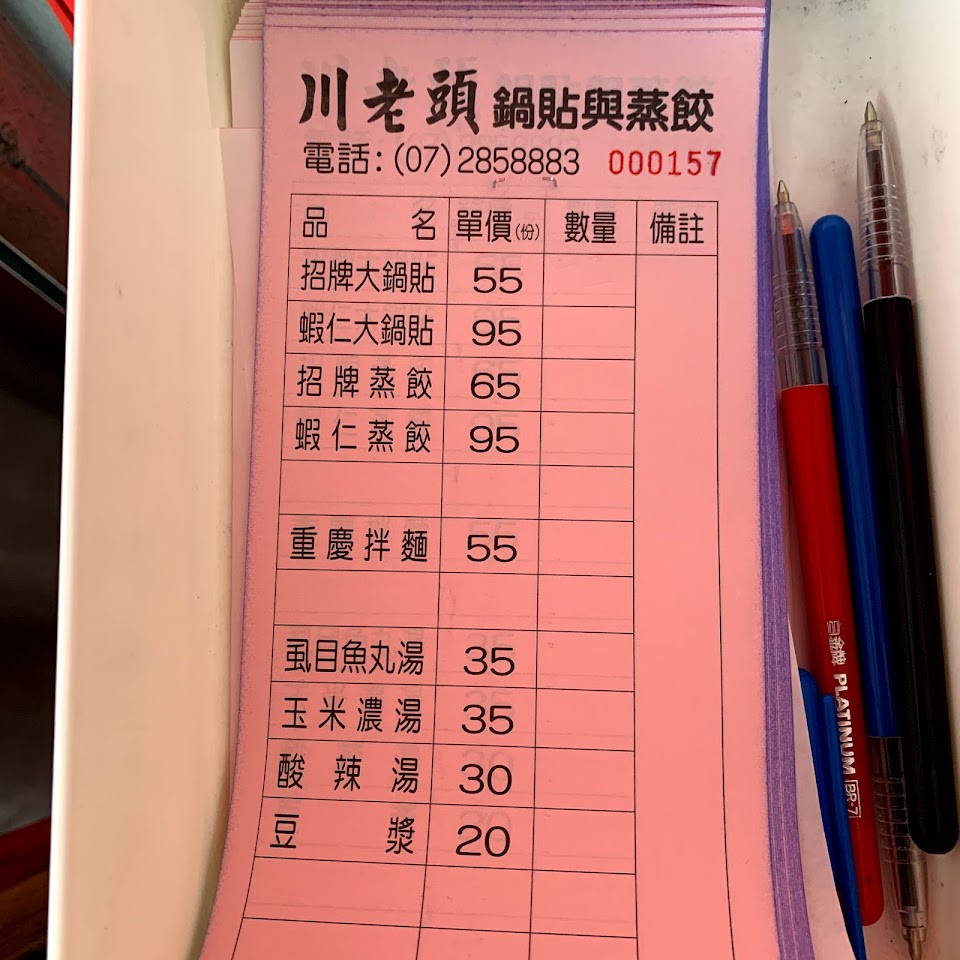 川老頭 鍋貼與蒸餃
電話:(07)2858883 000157
品名 單價(份) 數量 備註
招牌大鍋貼 55
蝦仁大鍋貼 95
招牌蒸餃 65
蝦仁蒸餃 95
重慶拌麵 55
虱目魚丸湯 35
玉米濃湯 35
酸辣湯 30
豆漿 20
白金牌 PLATINUM BR-7